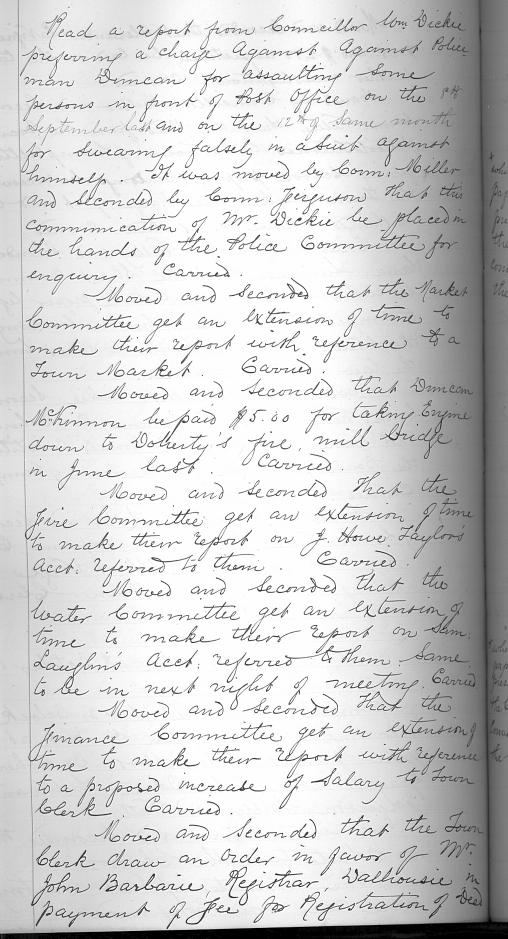 Read a report from Councillor Wm Dickie
preferring a charge Against Against Police
man Duncan for assaulting some
persons in front of Post Office on the 8th
September last and on the 12th of same month
for swearing falsely in a Suit against
himself. It was moved by Coun: Miller
and Seconded by Coun: Ferguson that this
communication of Mr. Dickie be placed in
the hands of the Police Committee for
enquiry. Carried.
Moved and Seconded that the Market
Committee get an Extension of time to
make their report with reference to a
Town Market. Carried.
Moved and Seconded that Duncan
McKinnon be paid $5.00 for taking Engine
down to Doherty's fire, mill bridge
in June last. Carried.
Moved and Seconded that the
Fire Committee get an extension of time
to make their report on J. Howe Taylor's
Acct: referred to them. Carried.
Moved and Seconded that the
Water Committee get an extension of
time to make their report on Sam:
Lauglin's Acct: referred to them. Same
to be in next night of meeting. Carried
Moved and Seconded that the
Finance Committee get an extension of
time to make their report with reference
to a proposed increase of Salary to Town
Clerk. Carried.
Moved and Seconded that the Town
Clerk draw an order in favor of Mr.
John Barbarie, Registrar, Dalhousie in
payment of Fee for Registration of Deed